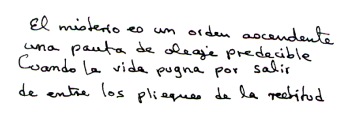 El misterio es un orden ascendente
una pauta de oleaje predecible
Cuando la vida pugna por salir
de entre los pliegues de la rectitud